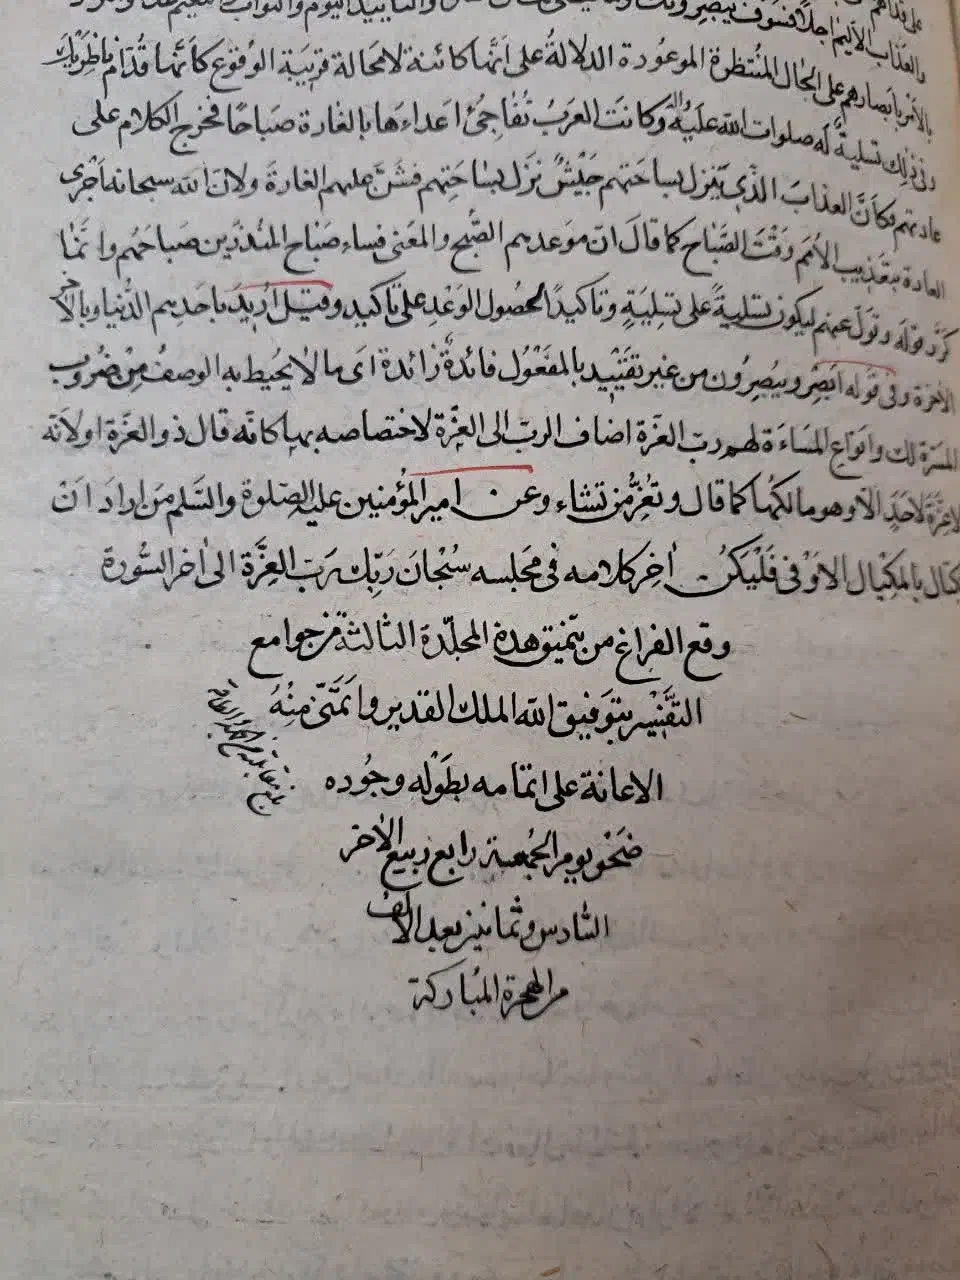 والعذاب الأليم آجلا فسوف يبصرونك
بالأمر بابصارهم على الحال المنتظرة الموعودة الدلالة على انها كائنة لا محالة قريبة الوقوع كأنّها قدّام ناظريك
وفى ذلك تسليةٌ له صلوات الله عليه وآله وكانت العرب تُفَاجئ اعداءَها بالغارة صباحًا فخرج الكلام على
عادتهم فكأنّ العذاب الذّى يَنزل بساحتهم جَيْشٌ نزل بسَاحَتِهم فشَنَّ عليهم الغارة ولانّ الله سبحانه اَجْرى
العادة بتعذيب الاُمم وَقْتَ الصَّباح كما قالَ انّ موعدهم الصُّبح والمعنى فساء صَباح المنذَرين صباحَهُم وانّما
كرّر قوله وتولّ عنهم ليكون تسليةً على تسليةٍ وتاكيدًا لحصول الوعْد على تاكيد وقيل اُريدَ باحدهما الدُّنيا وبالآخر
الآخرة وفى قوله اَبْصِرْ ويبصِرُون من غير تقْيِيد بالمفعُول فائدةٌ زائدة اى ما لا يُحيط به الوصف مِنْ ضُروب
المسرّة لك وانواع المسَاءَة لهم ربّ العزّة اضاف الربّ الى العِزّة لاختصاصه بها كانّه قال ذو العزّة او لانّه
لا عزّة لاَحَدٍ الّا وهو مالكها كما قال وتُعِزُّ مَن تشاء وعن امير المؤمنين عليه الصّلوة والسّلم مَن اراد اَنْ
يكتال بالمِكْيال الاَوْفى فَلْيَكُنْ آخِر كلامه فى مَجلسه سُبْحَانَ رَبِّكَ رَبِّ العِزَّة الى آخر السُّورة
وقع الفراغ من تنميق هذه المجلّدة الثالثة من جوامع
التَّفْسير بتَوفيق الله الملك القدير واَتَمَنّى مِنْهُ
الاعانة على اتمامه بطَوْله وجُوده
ضَحْو يوم الجُمعة رابع ربيع الآخر
السّادس وثمانين بعد الالف
من الهجرة المُباركة